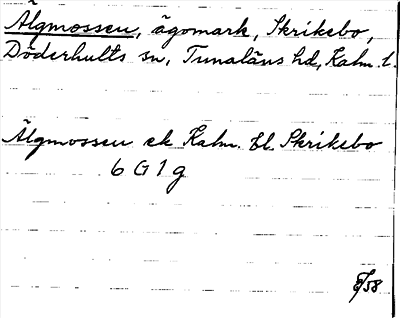 Älgmossen, ägomark, Skrikebo,
Döderhults sn, Tunaläns hd, Kalm. l.
Älgmossen ek Kalm. bl. Skrikebo
6 G 1 g
/58